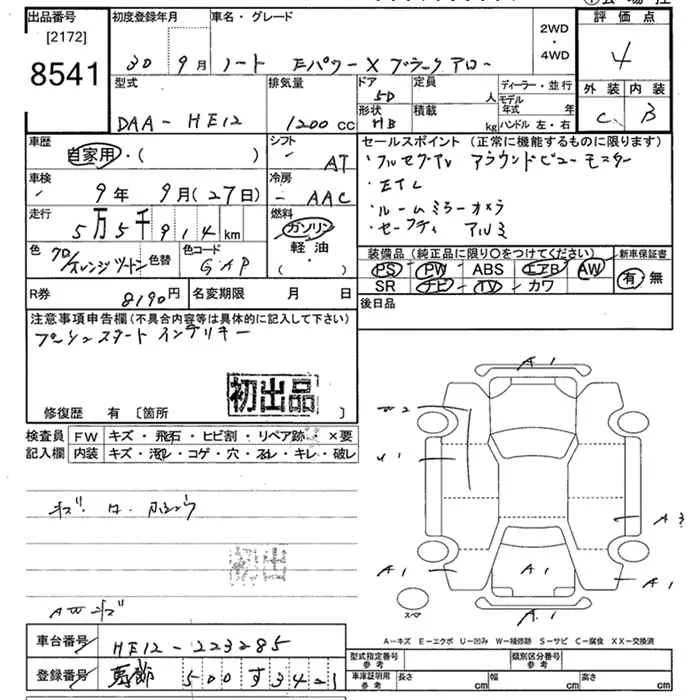 出品番号
[2172]
8541
初度登録年月
30 9月
車名・グレード
ノート Eパワー X ブラックアロー
2WD
・
4WD
評価点
4
外装 内装
C B
型式
DAA-HE12
排気量
1200 cc
ドア
5D
形状
HB
定員
人
積載
kg
ディーラー・並行
モデル年式 年
ハンドル 左・右
車歴
自家用・( )
シフト
AT
車検
9年 9月(27日)
冷房
AAC
走行
5万5千914km
燃料
ガソリン
軽・油
・( )
色
クロ/オレンジツートン
色替
色コード
GAP
セールスポイント(正常に機能するものに限ります)
・フルセグTV アラウンドビューモニター
・ETC
・ルームミラーカメラ
・セーフティ アルミ
装備品(純正品に限り○をつけてください)
PS PW ABS エアB AW
SR ナビ TV カワ
新車保証書
有・無
R券
8190円
名変期限 月 日
後日品
注意事項申告欄(不具合内容等は具体的に記入して下さい)
プッシュスタート インテリキー
初出品
修復歴 有〔箇所 〕
検査員
記入欄
FW キズ・飛石・ヒビ割・リペア跡 ×要
内装 キズ・汚れ・コゲ・穴・スレ・キレ・破レ
初出
AWキズ
A1
W2
U1
A3
A1
A1
A1
A1
スペア
車台番号
HE12-223285
登録番号
葛飾 500 す 3421
A-キズ E-エクボ U-凹み W-補修跡 S-サビ C-腐食 XX-交換済
型式指定番号
参考
類別区分番号
参考
車庫証明用
参考
長さ cm 幅 cm 高さ cm